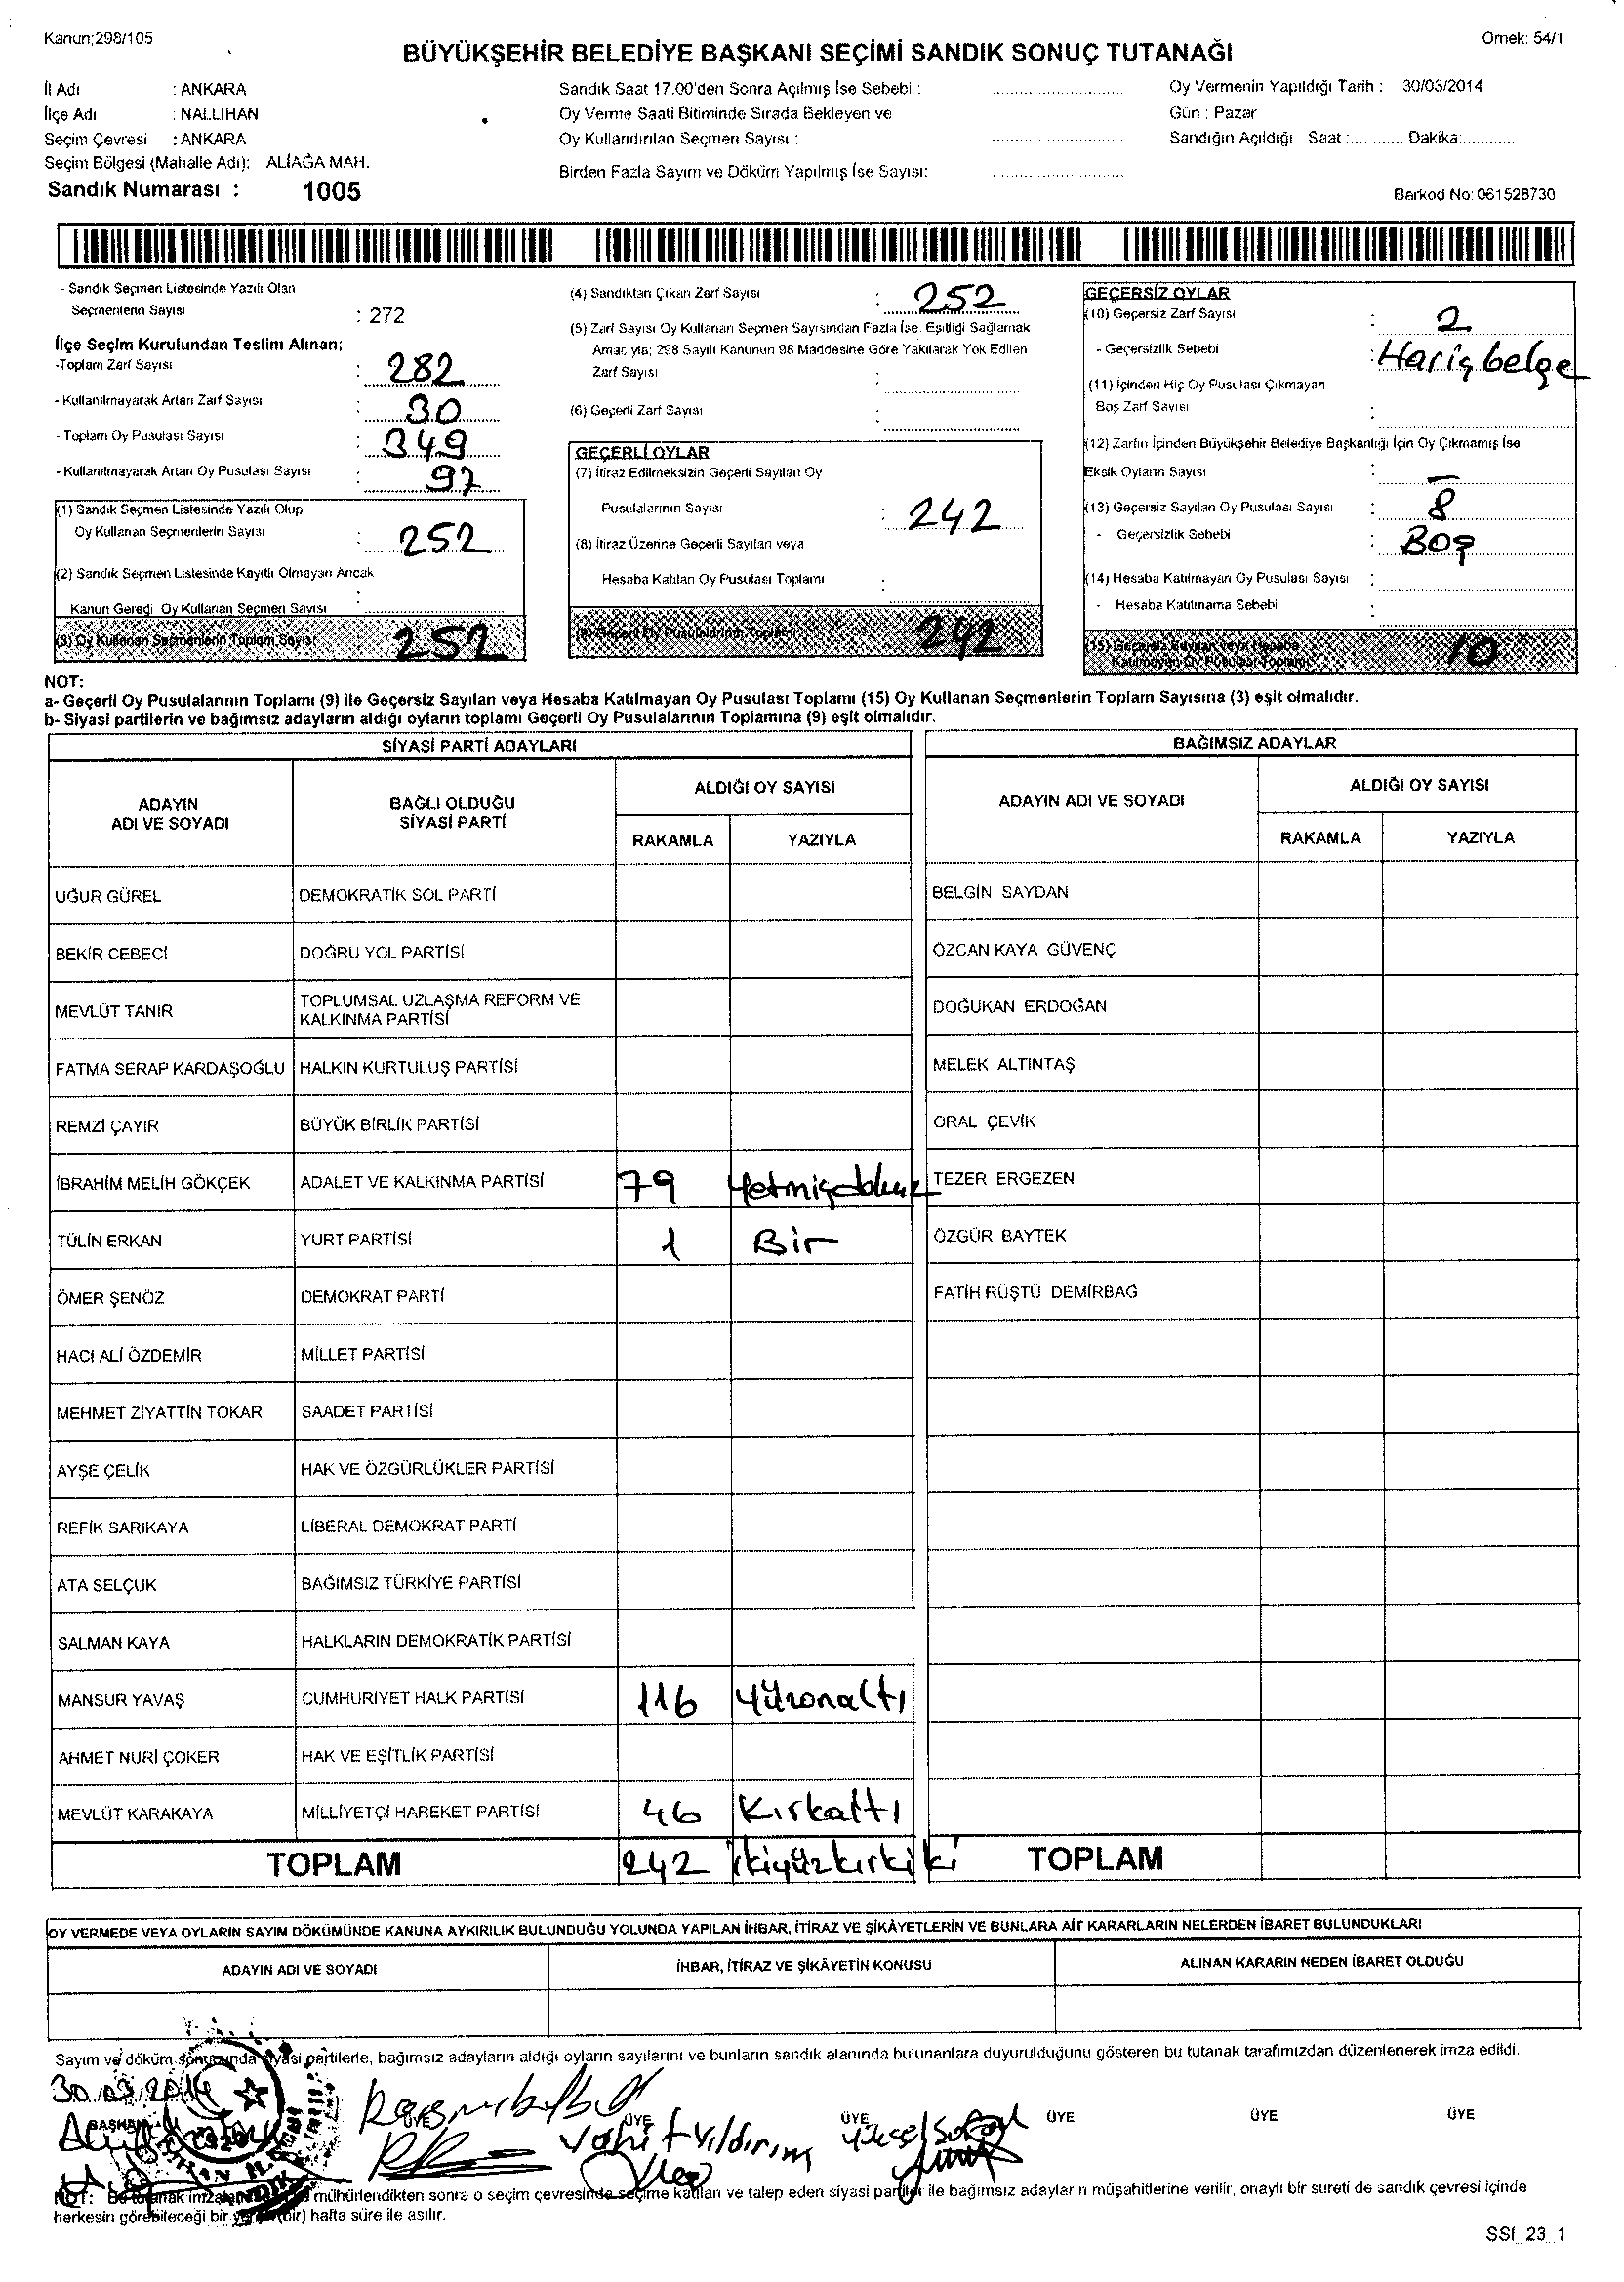 Kanun;298/105
Örnek: 54/1
BÜYÜKŞEHİR BELEDİYE BAŞKANI SEÇİMİ SANDIK SONUÇ TUTANAĞI
İl Adı : ANKARA
İlçe Adı : NALLIHAN
Seçim Çevresi : ANKARA
Seçim Bölgesi (Mahalle Adı): ALİAĞA MAH.
Sandık Numarası : 1005
Sandık Saat 17.00'den Sonra Açılmış İse Sebebi :
Oy Verme Saati Bitiminde Sırada Bekleyen ve
Oy Kullandırılan Seçmen Sayısı :
Birden Fazla Sayım ve Döküm Yapılmış İse Sayısı:
Oy Vermenin Yapıldığı Tarih : 30/03/2014
Gün : Pazar
Sandığın Açıldığı Saat :............ Dakika:............
Barkod No: 061528730
- Sandık Seçmen Listesinde Yazılı Olan
Seçmenlerin Sayısı : 272
İlçe Seçim Kurulundan Teslim Alınan;
-Toplam Zarf Sayısı : 282
- Kullanılmayarak Artan Zarf Sayısı : 30
- Toplam Oy Pusulası Sayısı : 349
- Kullanılmayarak Artan Oy Pusulası Sayısı : 97
(1) Sandık Seçmen Listesinde Yazılı Olup
Oy Kullanan Seçmenlerin Sayısı : 252
(2) Sandık Seçmen Listesinde Kayıtlı Olmayan Ancak
Kanun Gereği Oy Kullanan Seçmen Sayısı :
(3) Oy Kullanan Seçmenlerin Toplam Sayısı 252
(4) Sandıktan Çıkan Zarf Sayısı : 252
(5) Zarf Sayısı Oy Kullanan Seçmen Sayısından Fazla İse. Eşitliği Sağlamak
Amacıyla; 298 Sayılı Kanunun 98 Maddesine Göre Yakılarak Yok Edilen
Zarf Sayısı :
(6) Geçerli Zarf Sayısı :
GEÇERLİ OYLAR
(7) İtiraz Edilmeksizin Geçerli Sayılan Oy
Pusulalarının Sayısı : 242
(8) İtiraz Üzerine Geçerli Sayılan veya
Hesaba Katılan Oy Pusulası Toplamı :
(9) Geçerli Oy Pusulalarının Toplamı 242
GEÇERSİZ OYLAR
(10) Geçersiz Zarf Sayısı : 2
- Geçersizlik Sebebi : Hariç belge
(11) İçinden Hiç Oy Pusulası Çıkmayan
Boş Zarf Sayısı :
(12) Zarfın İçinden Büyükşehir Belediye Başkanlığı İçin Oy Çıkmamış İse
Eksik Oyların Sayısı : –
(13) Geçersiz Sayılan Oy Pusulası Sayısı : 8
- Geçersizlik Sebebi : Boş
(14) Hesaba Katılmayan Oy Pusulası Sayısı :
- Hesaba Katılmama Sebebi :
(15) Geçersiz Sayılan veya Hesaba
Katılmayan Oy Pusulası Toplamı 10
NOT:
a- Geçerli Oy Pusulalarının Toplamı (9) ile Geçersiz Sayılan veya Hesaba Katılmayan Oy Pusulası Toplamı (15) Oy Kullanan Seçmenlerin Toplam Sayısına (3) eşit olmalıdır.
b- Siyasi partilerin ve bağımsız adayların aldığı oyların toplamı Geçerli Oy Pusulalarının Toplamına (9) eşit olmalıdır.
SİYASİ PARTİ ADAYLARI
ADAYIN ADI VE SOYADI
BAĞLI OLDUĞU SİYASİ PARTİ
ALDIĞI OY SAYISI
RAKAMLA YAZIYLA
UĞUR GÜREL DEMOKRATİK SOL PARTİ
BEKİR CEBECİ DOĞRU YOL PARTİSİ
MEVLÜT TANIR TOPLUMSAL UZLAŞMA REFORM VE
KALKINMA PARTİSİ
FATMA SERAP KARDAŞOĞLU HALKIN KURTULUŞ PARTİSİ
REMZİ ÇAYIR BÜYÜK BİRLİK PARTİSİ
İBRAHİM MELİH GÖKÇEK ADALET VE KALKINMA PARTİSİ 79 Yetmişdokuz
TÜLİN ERKAN YURT PARTİSİ 1 Bir
ÖMER ŞENÖZ DEMOKRAT PARTİ
HACI ALİ ÖZDEMİR MİLLET PARTİSİ
MEHMET ZİYATTİN TOKAR SAADET PARTİSİ
AYŞE ÇELİK HAK VE ÖZGÜRLÜKLER PARTİSİ
REFİK SARIKAYA LİBERAL DEMOKRAT PARTİ
ATA SELÇUK BAĞIMSIZ TÜRKİYE PARTİSİ
SALMAN KAYA HALKLARIN DEMOKRATİK PARTİSİ
MANSUR YAVAŞ CUMHURİYET HALK PARTİSİ 116 Yüzonaltı
AHMET NURİ ÇOKER HAK VE EŞİTLİK PARTİSİ
MEVLÜT KARAKAYA MİLLİYETÇİ HAREKET PARTİSİ 46 Kırkaltı
TOPLAM 242 İkiyüzkırkiki
BAĞIMSIZ ADAYLAR
ADAYIN ADI VE SOYADI
ALDIĞI OY SAYISI
RAKAMLA YAZIYLA
BELGİN SAYDAN
ÖZCAN KAYA GÜVENÇ
DOĞUKAN ERDOĞAN
MELEK ALTINTAŞ
ORAL ÇEVİK
TEZER ERGEZEN
ÖZGÜR BAYTEK
FATİH RÜŞTÜ DEMİRBAĞ
TOPLAM
OY VERMEDE VEYA OYLARIN SAYIM DÖKÜMÜNDE KANUNA AYKIRILIK BULUNDUĞU YOLUNDA YAPILAN İHBAR, İTİRAZ VE ŞİKÂYETLERİN VE BUNLARA AİT KARARLARIN NELERDEN İBARET BULUNDUKLARI
ADAYIN ADI VE SOYADI
İHBAR, İTİRAZ VE ŞİKÂYETİN KONUSU
ALINAN KARARIN NEDEN İBARET OLDUĞU
Sayım ve döküm sonucunda siyasi partilerle, bağımsız adayların aldığı oyların sayılarını ve bunların sandık alanında bulunanlara duyurulduğunu gösteren bu tutanak tarafımızdan düzenlenerek imza edildi.
30.03.2014
BAŞKAN ÜYE ÜYE ÜYE ÜYE ÜYE ÜYE
Vahit Yıldırım
Yüksel
NOT: Bu tutanak mühürlendikten sonra o seçim çevresinde seçime katılan ve talep eden siyasi partiler ile bağımsız adayların müşahitlerine verilir, onaylı bir sureti de sandık çevresi içinde
herkesin görebileceği bir (bir) hafta süre ile asılır.
SSI_23_1